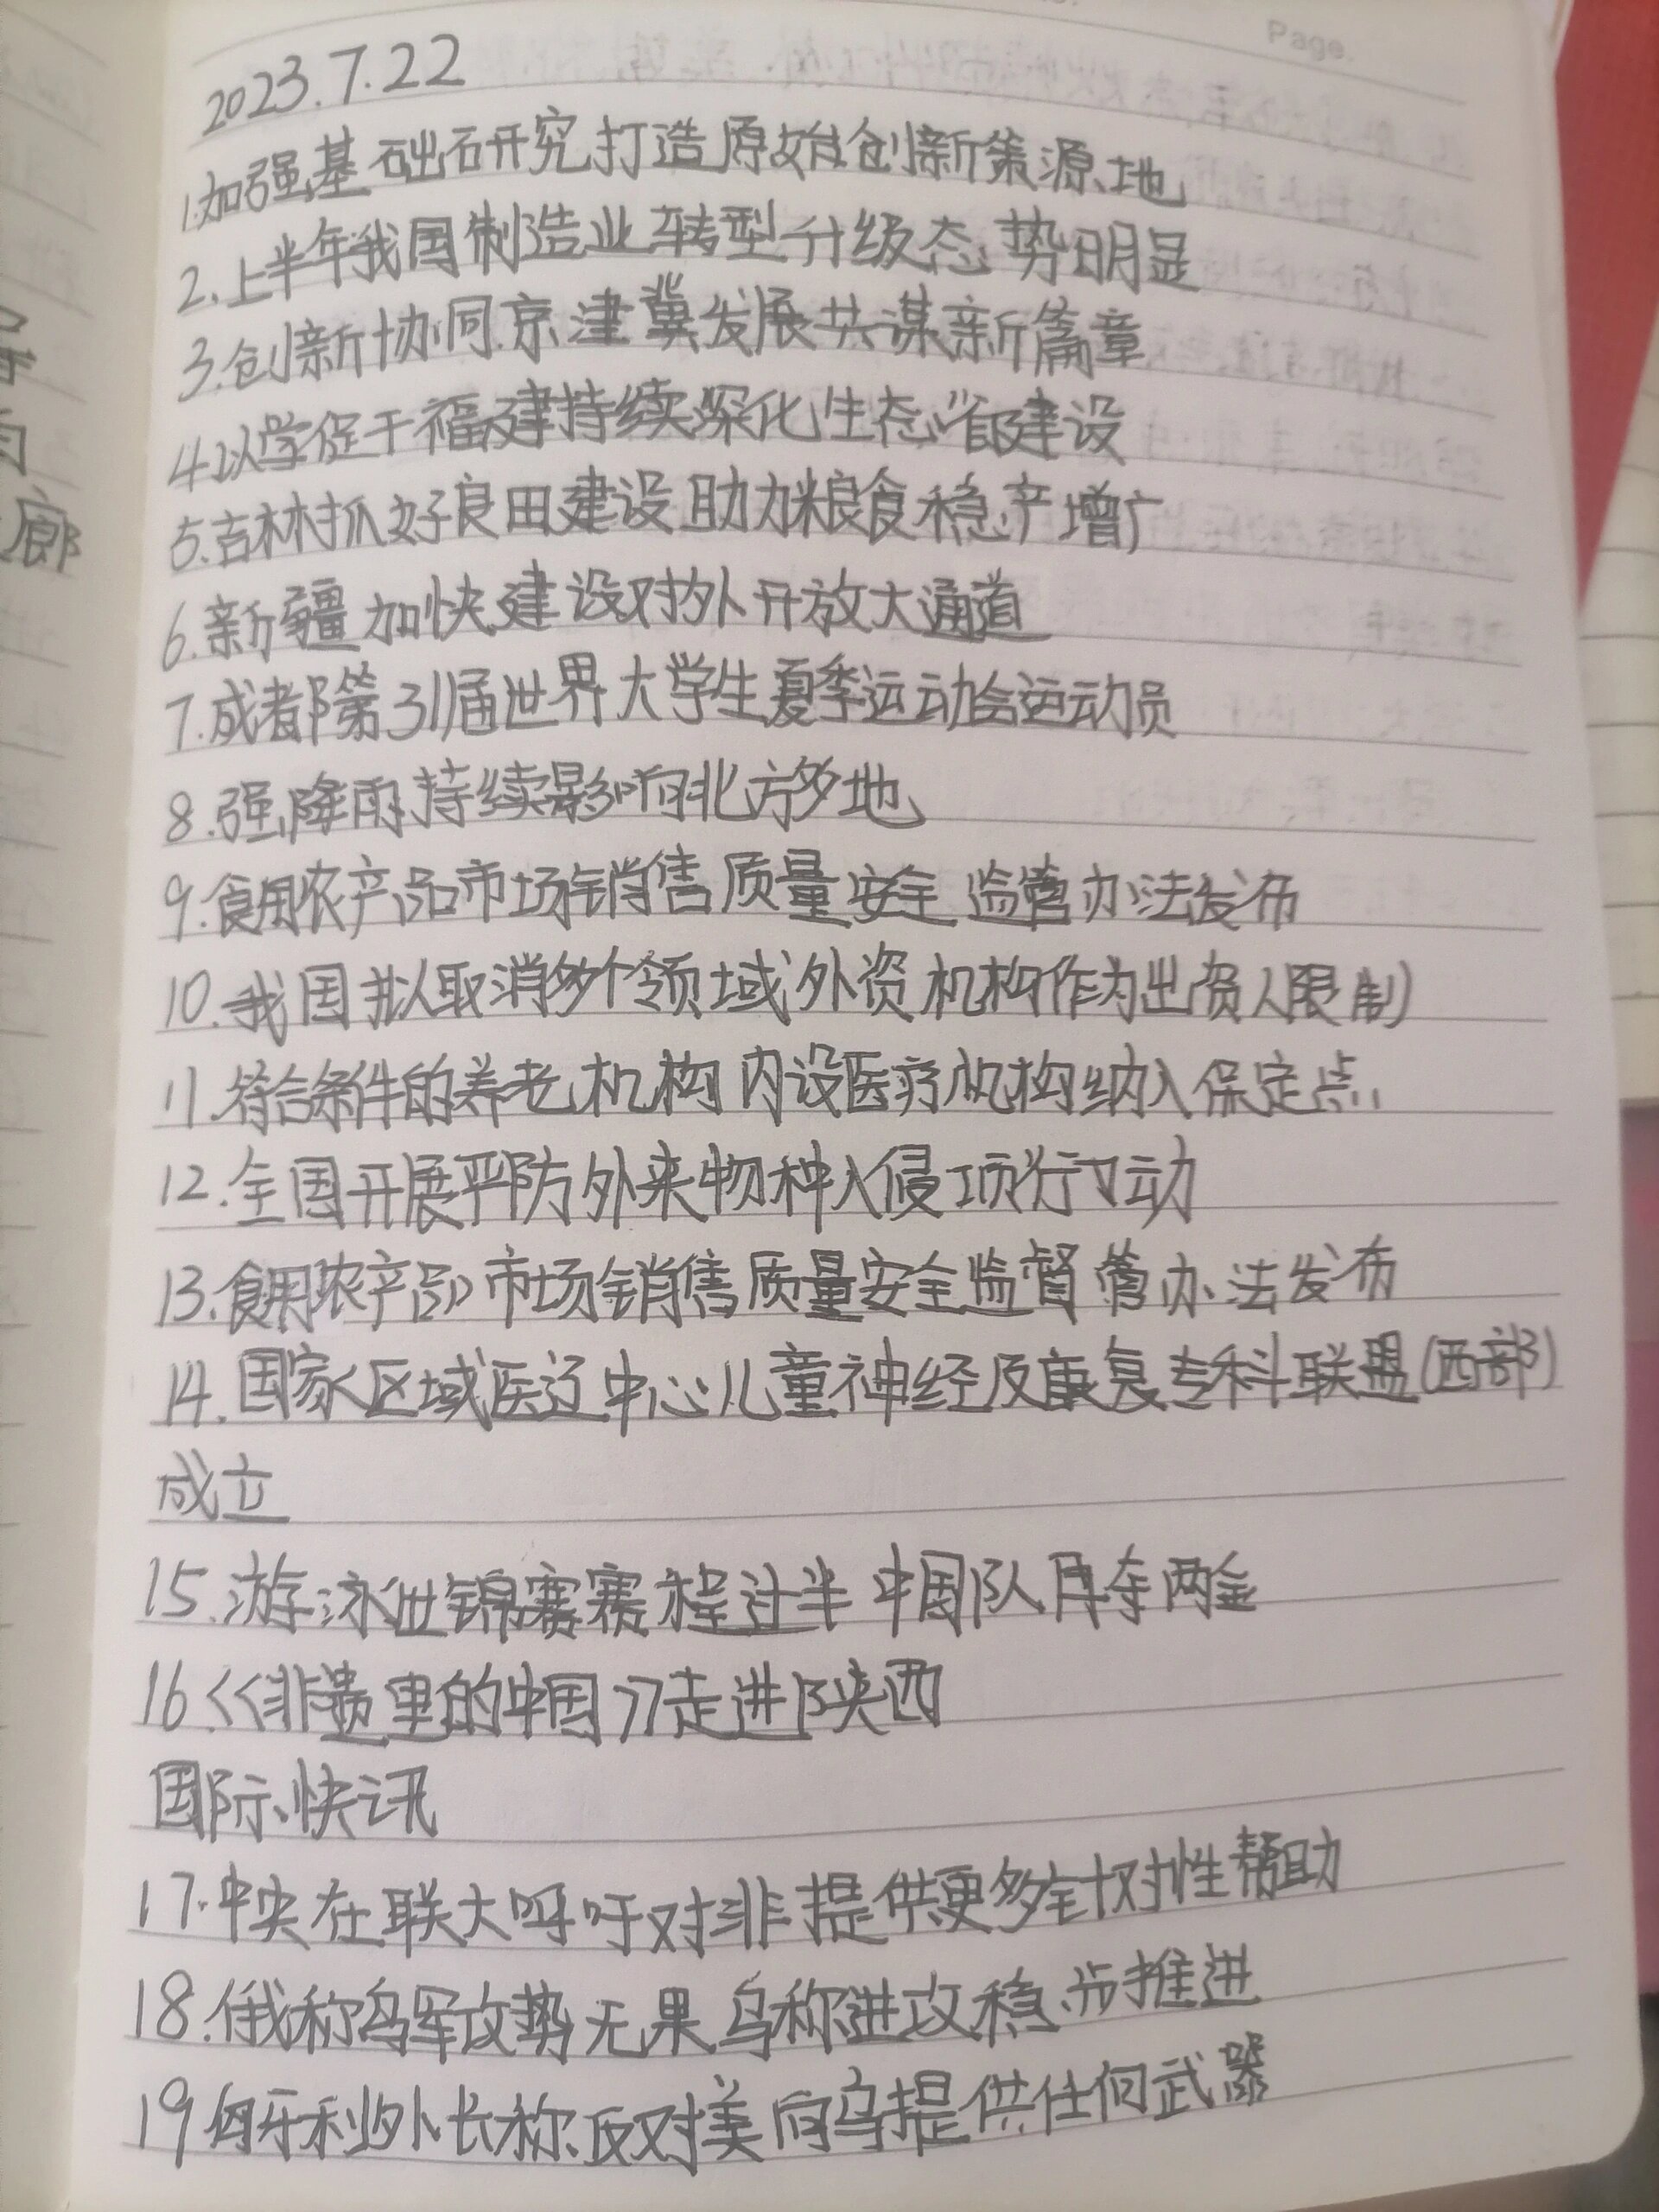 Page.
2023.7.22
1.加强基础研究打造原始创新策源地
2.上半年我国制造业转型升级态势明显
3.创新协同京津冀发展共谋新篇章
4.以学促干福建持续深化生态省建设
5.吉林抓好良田建设助力粮食稳产增广
6.新疆加快建设对外开放大通道
7.成都第31届世界大学生夏季运动会运动员
8.强降雨持续影响北方多地
9.食用农产品市场销售质量安全监管办法发布
10.我国拟取消多个领域外资机构作为出资人限制
11.符合条件的养老机构内设医疗机构纳入保定点
12.全国开展严防外来物种入侵项行动
13.食用农产品市场销售质量安全监督管办法发布
14.国家区域医辽中心儿童神经及康复专科联盟(西部)
成立
15.游泳世锦赛赛程过半中国队再夺两金
16.<<非遗里的中国>>走进陕西
国际快讯
17.中央在联大呼吁对非提供更多针对性帮助
18.俄称乌军攻势无果乌称进攻稳步推进
19匈牙利外长称反对美向乌提供任何武器
廊